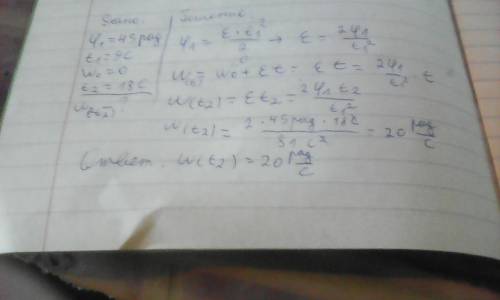 Дано:
φ₁ = 45 рад
t₁ = 9с
ω₀ = 0
t₂ = 18с
ω(t₂) - ?
Решение
φ₁ = ε · t₁² / 2 → ε = 2φ₁ / t₁²
ω(t) = ω₀ + εt = εt = 2φ₁ / t₁² · t
ω(t₂) = εt₂ = 2φ₁ t₂ / t₁²
ω(t₂) = 2 · 45 рад · 18с / 81 с² = 20 рад/с
Ответ: ω(t₂) = 20 рад/с